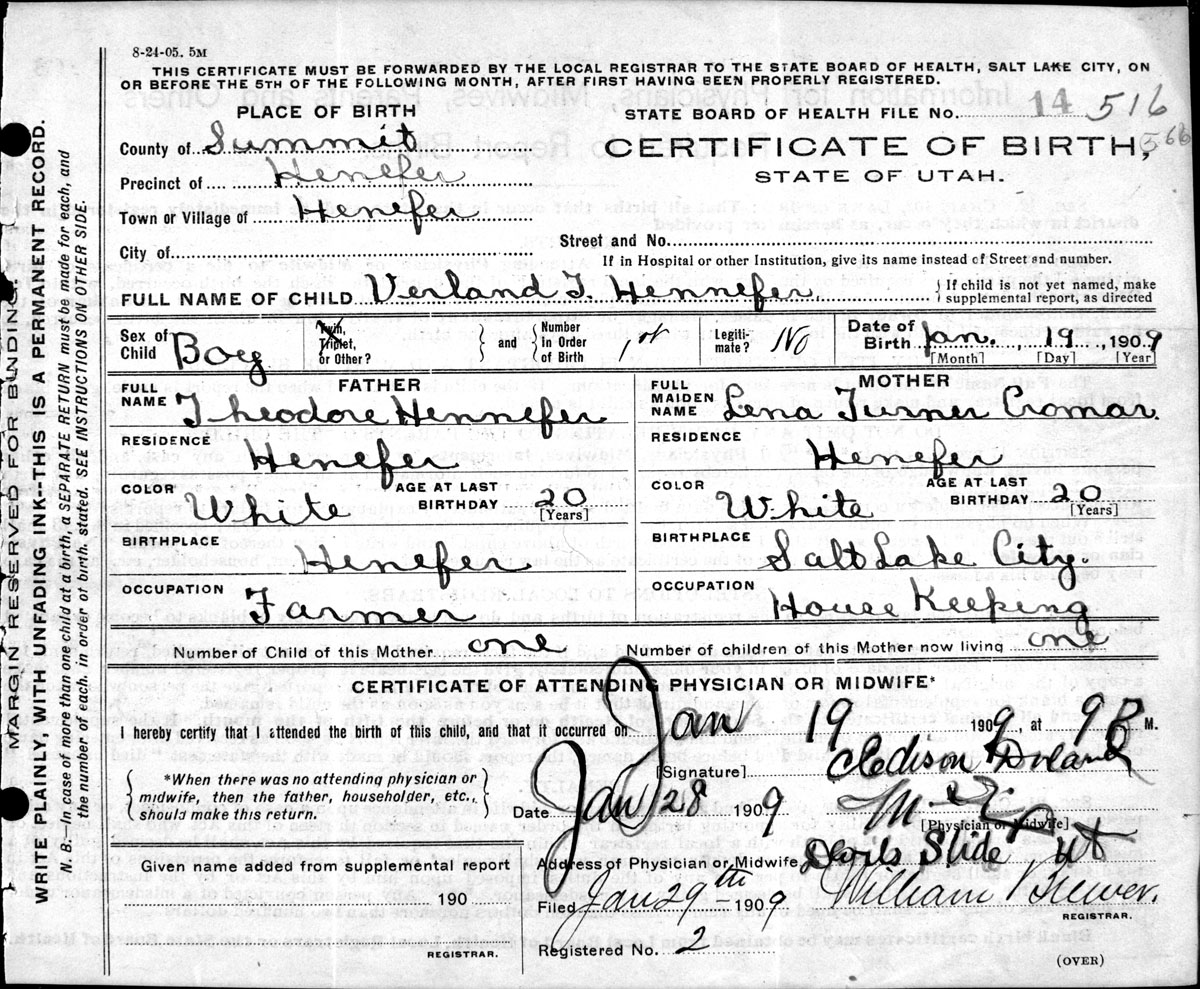 8-24-05. 5M
THIS CERTIFICATE MUST BE FORWARDED BY THE LOCAL REGISTRAR TO THE STATE BOARD OF HEALTH, SALT LAKE CITY, ON
OR BEFORE THE 5TH OF THE FOLLOWING MONTH, AFTER FIRST HAVING BEEN PROPERLY REGISTERED.
MARGIN RESERVED FOR BINDING.
WRITE PLAINLY, WITH UNFADING INK--THIS IS A PERMANENT RECORD.
N. B.—In case of more than one child at a birth, a SEPARATE RETURN must be made for each, and
the number of each, in order of birth, stated. SEE INSTRUCTIONS ON OTHER SIDE.
PLACE OF BIRTH
County of Summit
Precinct of Henefer
Town or Village of Henefer
City of
STATE BOARD OF HEALTH FILE No. 14 516
CERTIFICATE OF BIRTH, 566
STATE OF UTAH.
Street and No.
If in Hospital or other Institution, give its name instead of Street and number.
FULL NAME OF CHILD Verland T. Hennefer { If child is not yet named, make
supplemental report, as directed
Sex of Child Boy
Twin, Triplet, or Other?
and
Number in Order of Birth 1st
Legitimate? No
Date of Birth Jan. 19, 1909
[Month] [Day] [Year]
FATHER
FULL NAME Theodore Hennefer
RESIDENCE Henefer
COLOR White AGE AT LAST BIRTHDAY 20 [Years]
BIRTHPLACE Henefer
OCCUPATION Farmer
MOTHER
FULL MAIDEN NAME Lena Turner Cromar
RESIDENCE Henefer
COLOR White AGE AT LAST BIRTHDAY 20 [Years]
BIRTHPLACE Salt Lake City.
OCCUPATION House Keeping
Number of Child of this Mother one Number of children of this Mother now living one
CERTIFICATE OF ATTENDING PHYSICIAN OR MIDWIFE*
I hereby certify that I attended the birth of this child, and that it occurred on Jan 19 1909, at 9 P M.
*When there was no attending physician or
midwife, then the father, householder, etc.,
should make this return.
[Signature]
Date Jan 28 1909
[Physician or Midwife]
Address of Physician or Midwife, Devils Slide Ut
Given name added from supplemental report
190
REGISTRAR.
Filed Jan 29th 1909 William Brewer.
REGISTRAR.
Registered No. 2
(OVER)